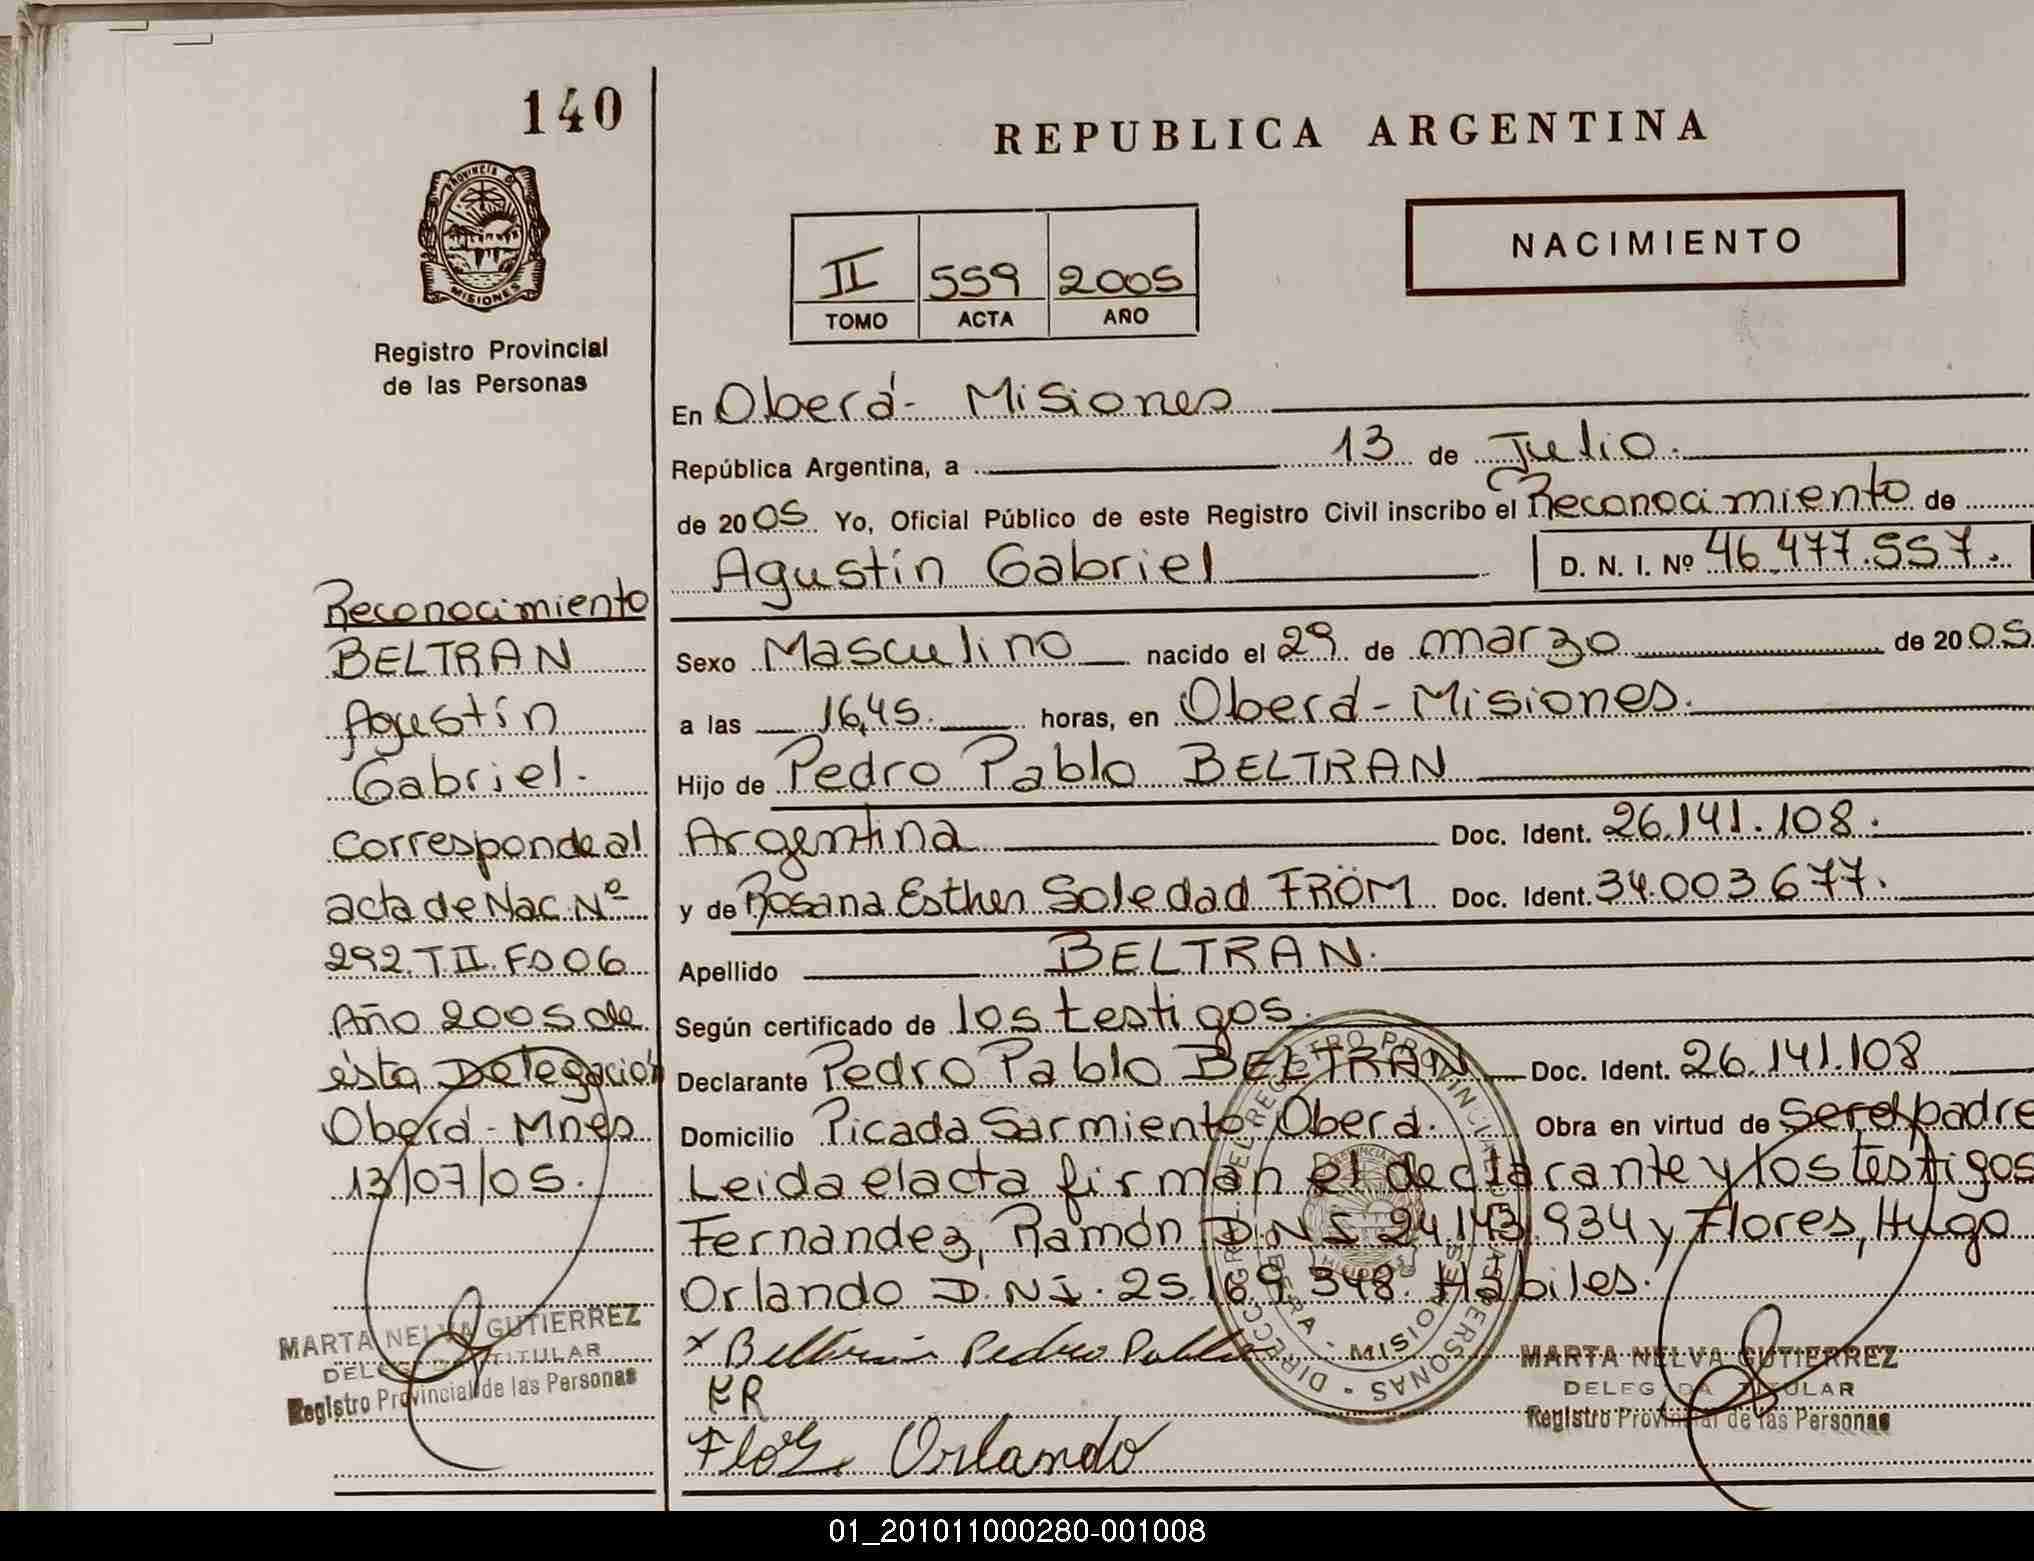 140
PROVINCIA D
MISIONES
Registro Provincial
de las Personas
Reconocimiento
BELTRAN
Agustín
Gabriel.
Corresponde al
acta de Nac. Nº
292. T II. Fº 06
Año 2005 de
ésta Delegación
Oberá - Mnes
13/07/05.
MARTA NELVA GUTIERREZ
DELEGADA TITULAR
Registro Provincial de las Personas
REPUBLICA ARGENTINA
NACIMIENTO
II 559 2005
TOMO ACTA AÑO
En Oberá - Misiones
República Argentina, a 13 de Julio.
de 2005 Yo, Oficial Público de este Registro Civil inscribo el Reconocimiento de
Agustín Gabriel D. N. I. Nº 46.477.557.
Sexo Masculino nacido el 29 de marzo de 2005
a las 16,45. horas, en Oberá - Misiones.
Hijo de Pedro Pablo BELTRAN
Argentina Doc. Ident. 26.141.108.
y de Rosana Esther Soledad FRÖM Doc. Ident. 34.003.677.
Apellido BELTRAN.
Según certificado de los testigos.
Declarante Pedro Pablo BELTRAN Doc. Ident. 26.141.108
Domicilio Picada Sarmiento Oberá. Obra en virtud de ser el padre
Leida el acta firman el declarante y los testigos
Fernandez, Ramón D.N.I. 24.143.934 y Flores, Hugo
Orlando D.N.I. 25.169.348. Hábiles.
x Beltran Pedro Pablo
FR
Orlando
MARTA NELVA GUTIERREZ
DELEGADA TITULAR
Registro Provincial de las Personas
01_201011000280-001008